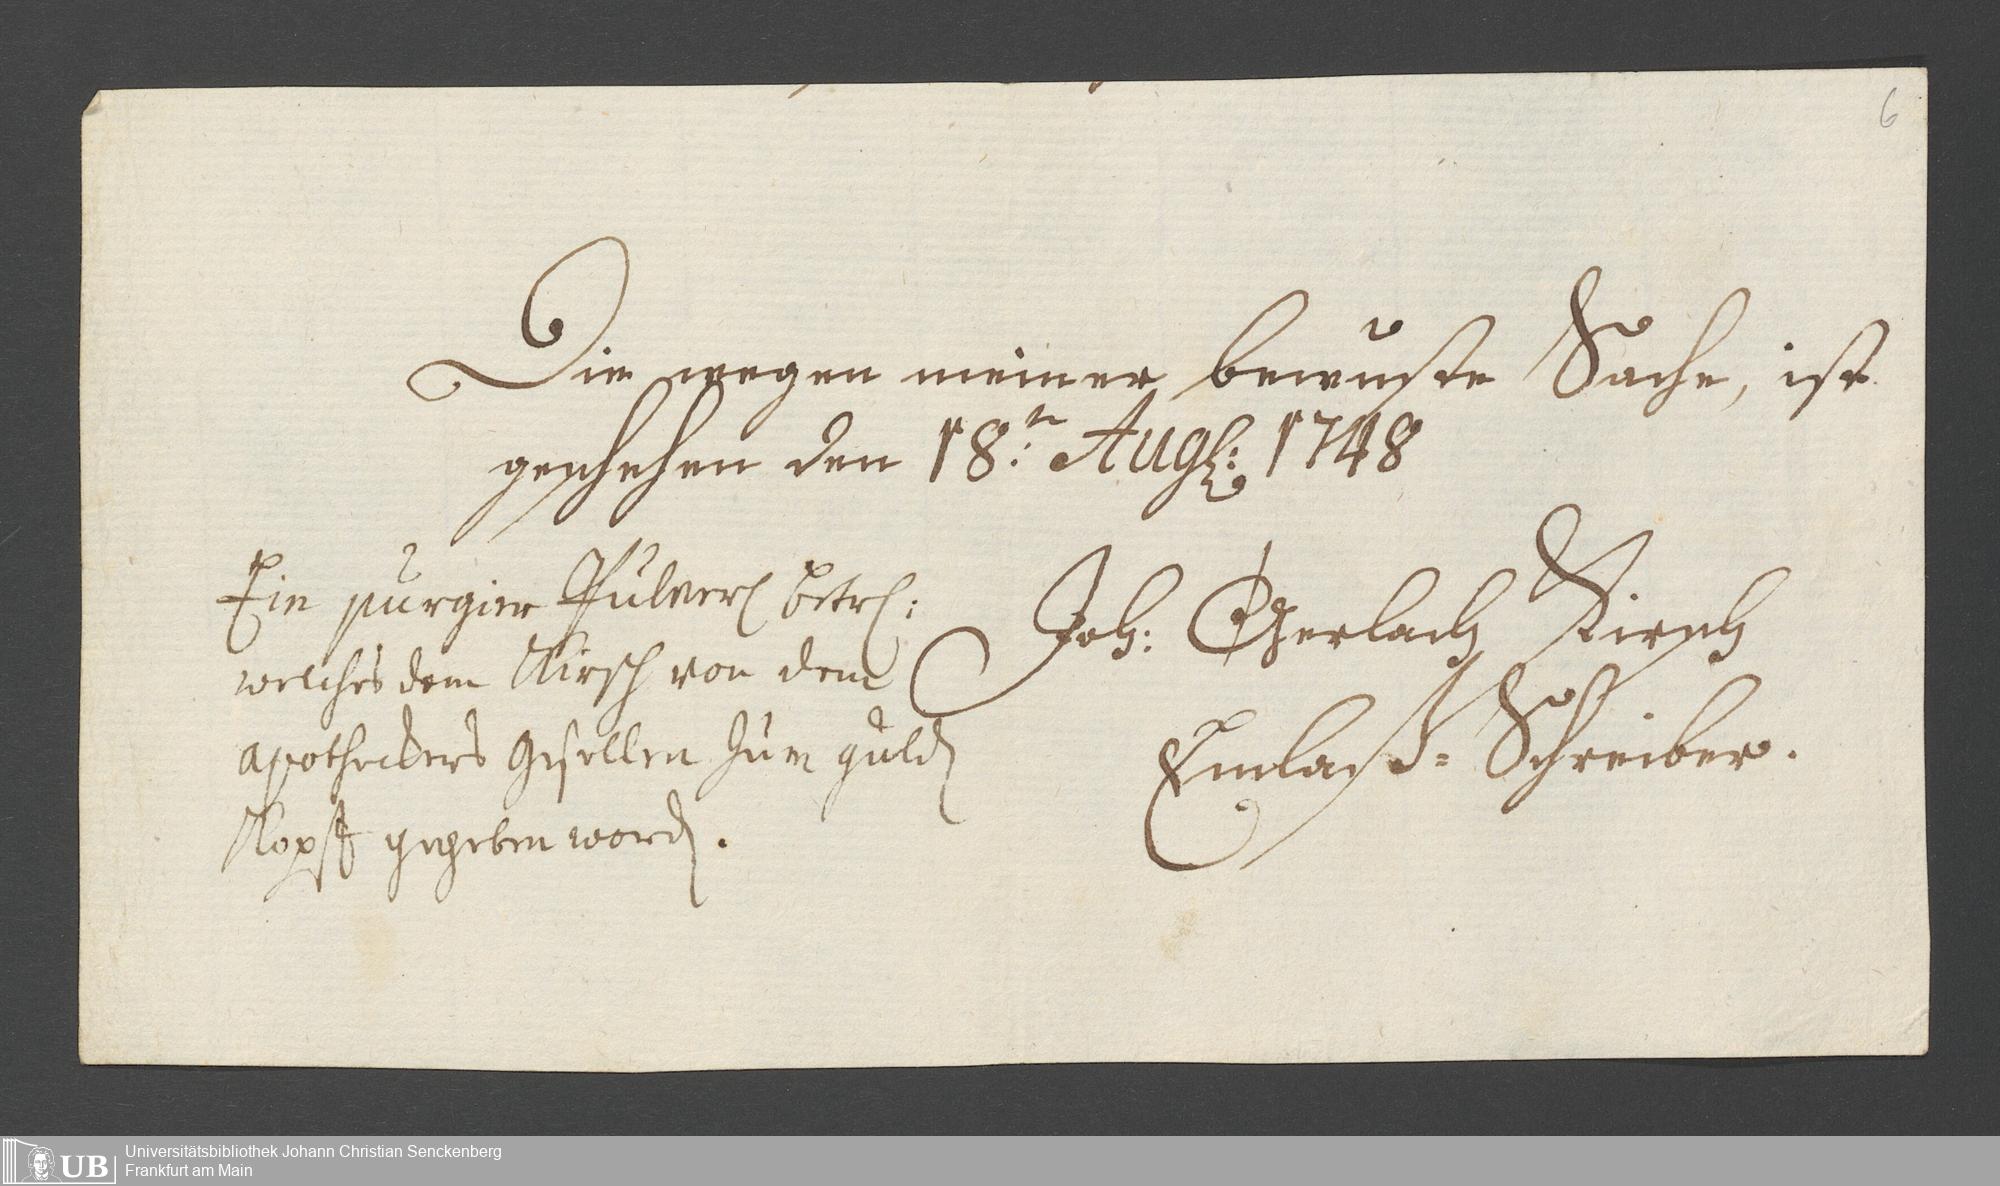 6
Die wegen meiner bewuste Sache, ist
geschehen den 18.tn Augl: 1748
Joh: Gerlach Kirsch
Einlaß= Schreiber.
Ein purgier Pulver betrl:
welches dem Kirsch von dem
apotheckers Gesellen zum guld
Kopff gegeben word.
UB
Universitätsbibliothek Johann Christian Senckenberg
Frankfurt am Main